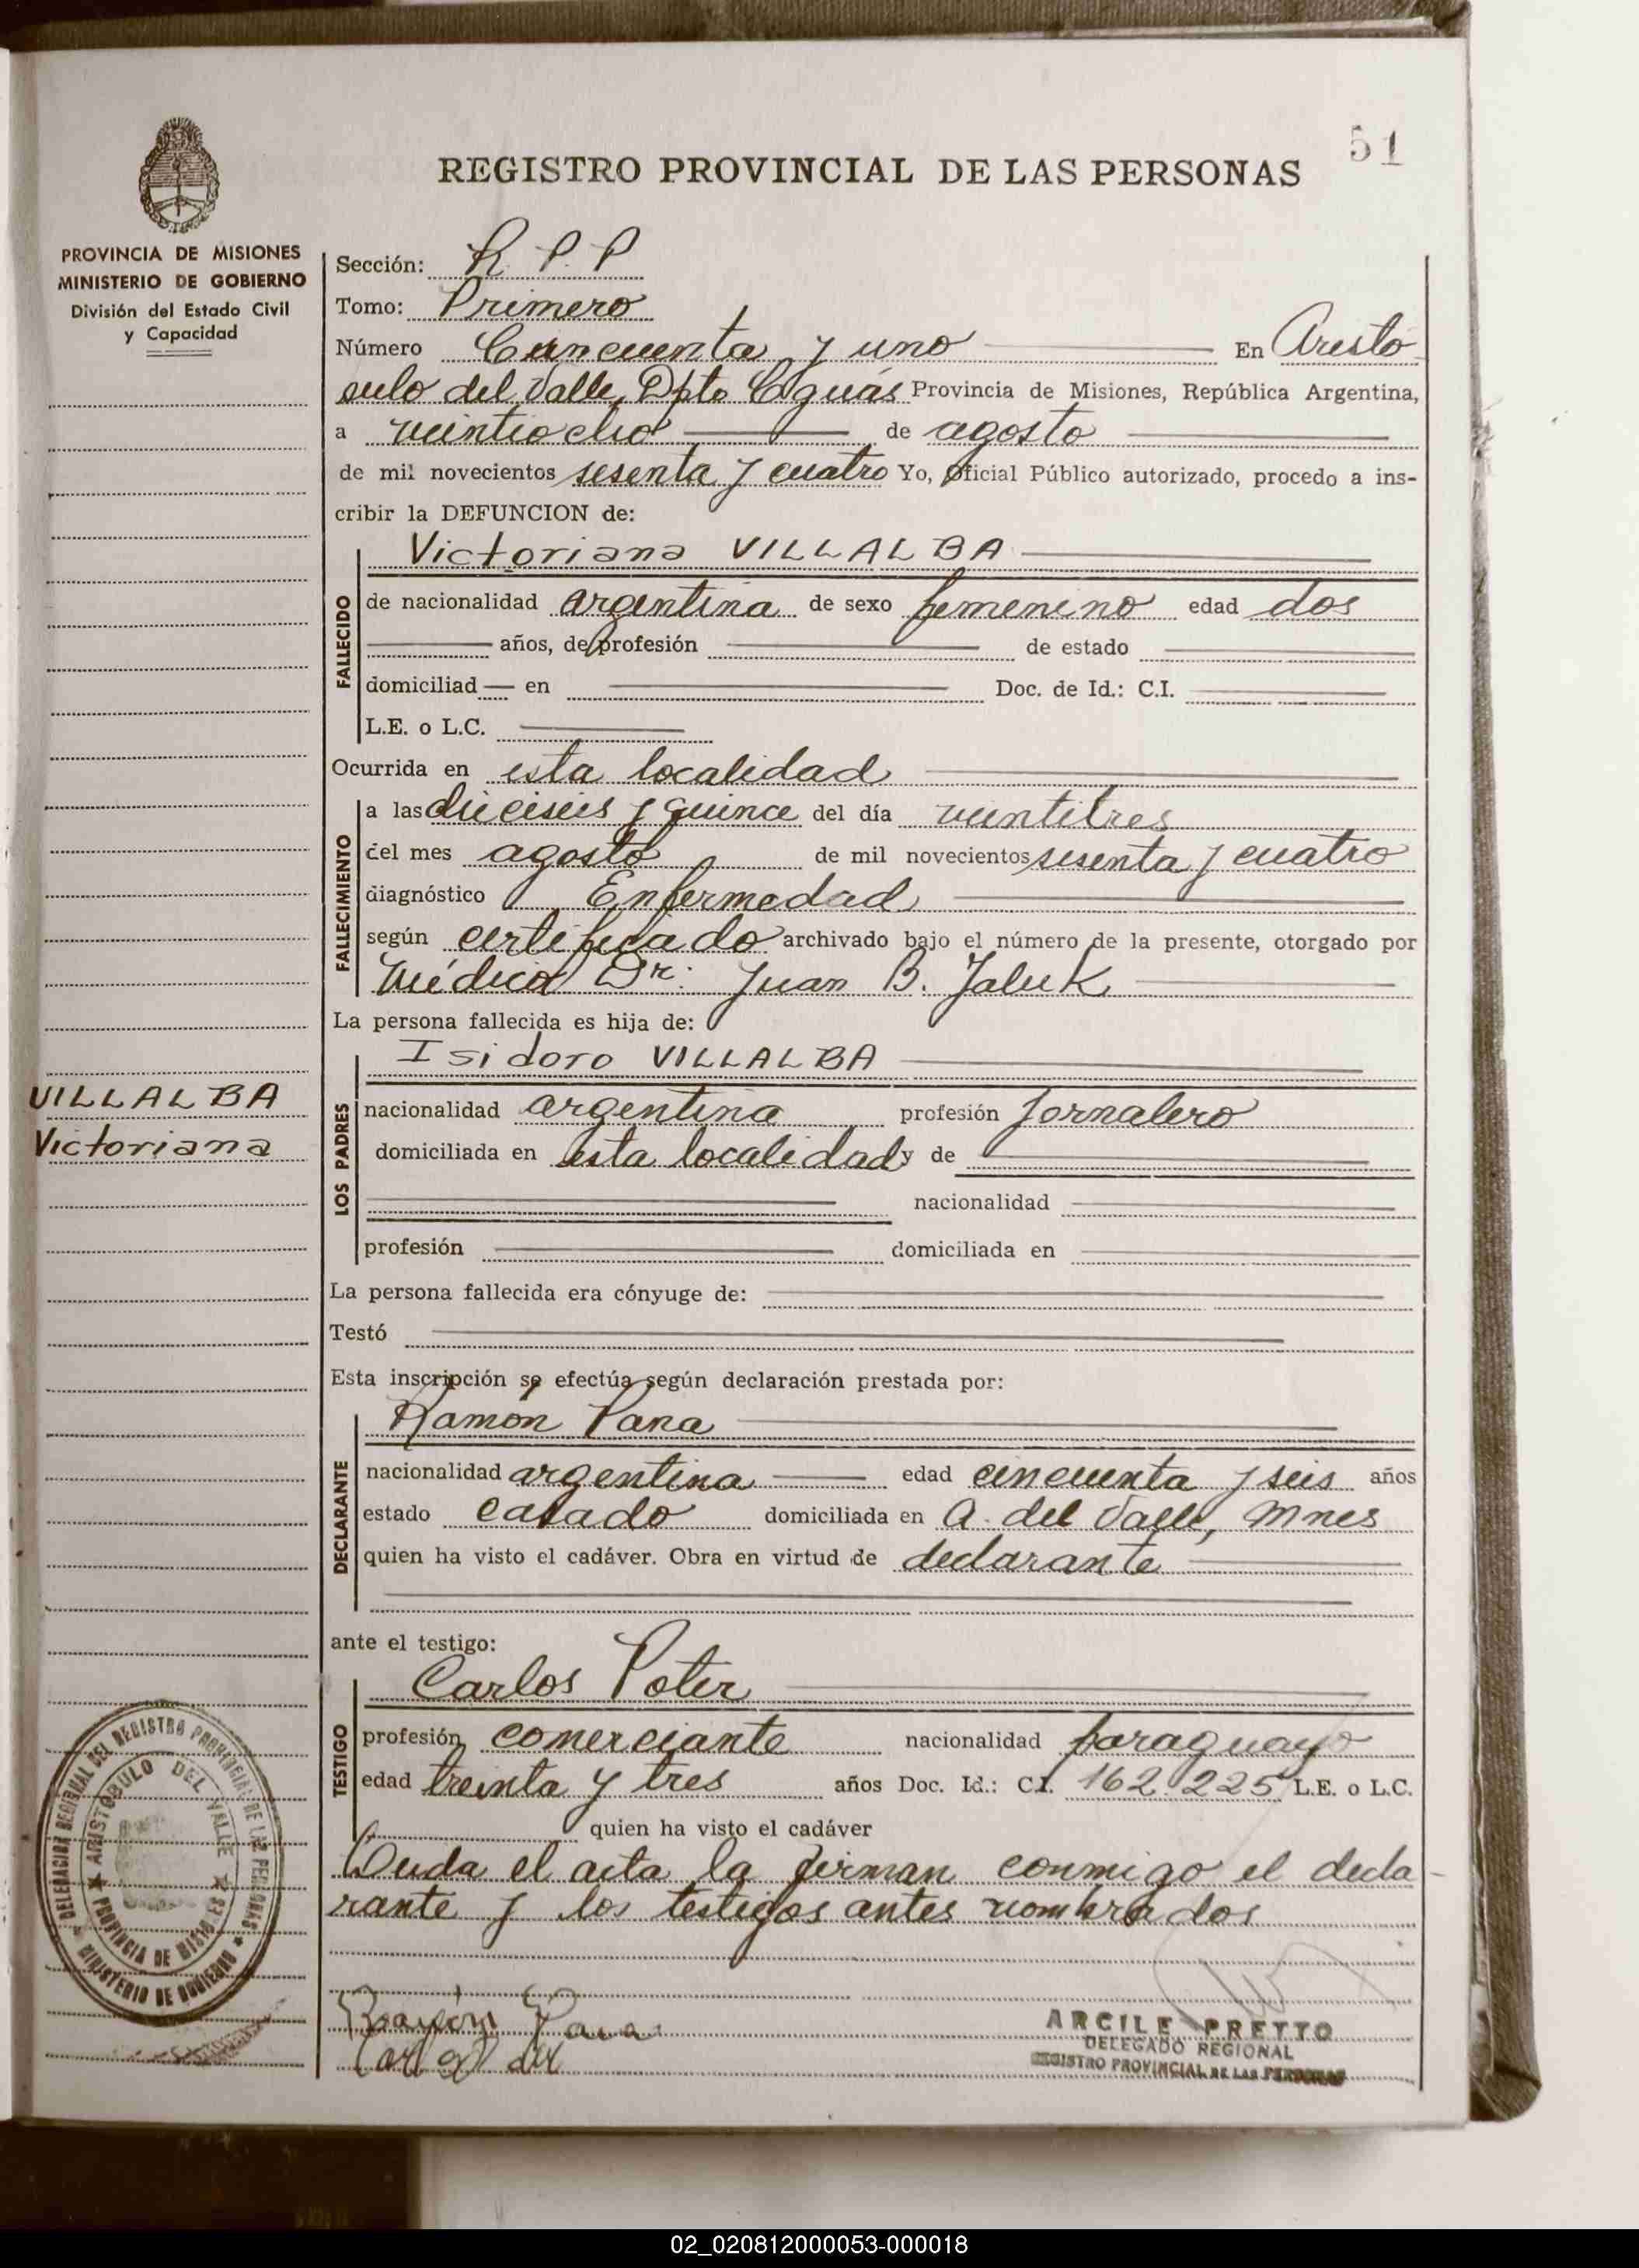 51
REGISTRO PROVINCIAL DE LAS PERSONAS
PROVINCIA DE MISIONES
MINISTERIO DE GOBIERNO
División del Estado Civil
y Capacidad
Sección: R. P. P
Tomo: Primero
Número Cincuenta y uno En Aristó
bulo del Valle, Dpto Caguás Provincia de Misiones, República Argentina,
a veintiocho de agosto
de mil novecientos sesenta y cuatro Yo, Oficial Público autorizado, procedo a ins-
cribir la DEFUNCION de:
Victoriana VILLALBA
FALLECIDO
de nacionalidad argentina de sexo femenino edad dos
años, de profesión de estado
domiciliad en Doc. de Id.: C.I.
L.E. o L.C.
Ocurrida en esta localidad
FALLECIMIENTO
a las dieciseis y quince del día veintitres
del mes agosto de mil novecientos sesenta y cuatro
diagnóstico Enfermedad
según certificado archivado bajo el número de la presente, otorgado por
Médico Dr: Juan B. Jaluk
La persona fallecida es hija de:
Isidoro VILLALBA
VILLALBA
Victoriana
LOS PADRES
nacionalidad argentina profesión Jornalero
domiciliada en esta localidad y de
nacionalidad
profesión domiciliada en
La persona fallecida era cónyuge de:
Testó
Esta inscripción se efectúa según declaración prestada por:
Ramón Pana
DECLARANTE
nacionalidad argentina edad cincuenta y seis años
estado casado domiciliada en A. del Valle, Mnes
quien ha visto el cadáver. Obra en virtud de declarante
ante el testigo:
Carlos Poter
TESTIGO
profesión comerciante nacionalidad paraguayo
edad treinta y tres años Doc. Id.: C.I. 162.225 L.E. o L.C.
quien ha visto el cadáver
el acta la firman conmigo el decla-
rante y los testigos antes nombrados
DELEGACION REGIONAL DEL REGISTRO PROVINCIAL DE LAS PERSONAS
MINISTERIO DE GOBIERNO
ARISTOBULO DEL VALLE
PROVINCIA DE MISIONES
Ramón Pana
ARCILE PRETTO
DELEGADO REGIONAL
REGISTRO PROVINCIAL DE LAS PERSONAS
02_020812000053-000018